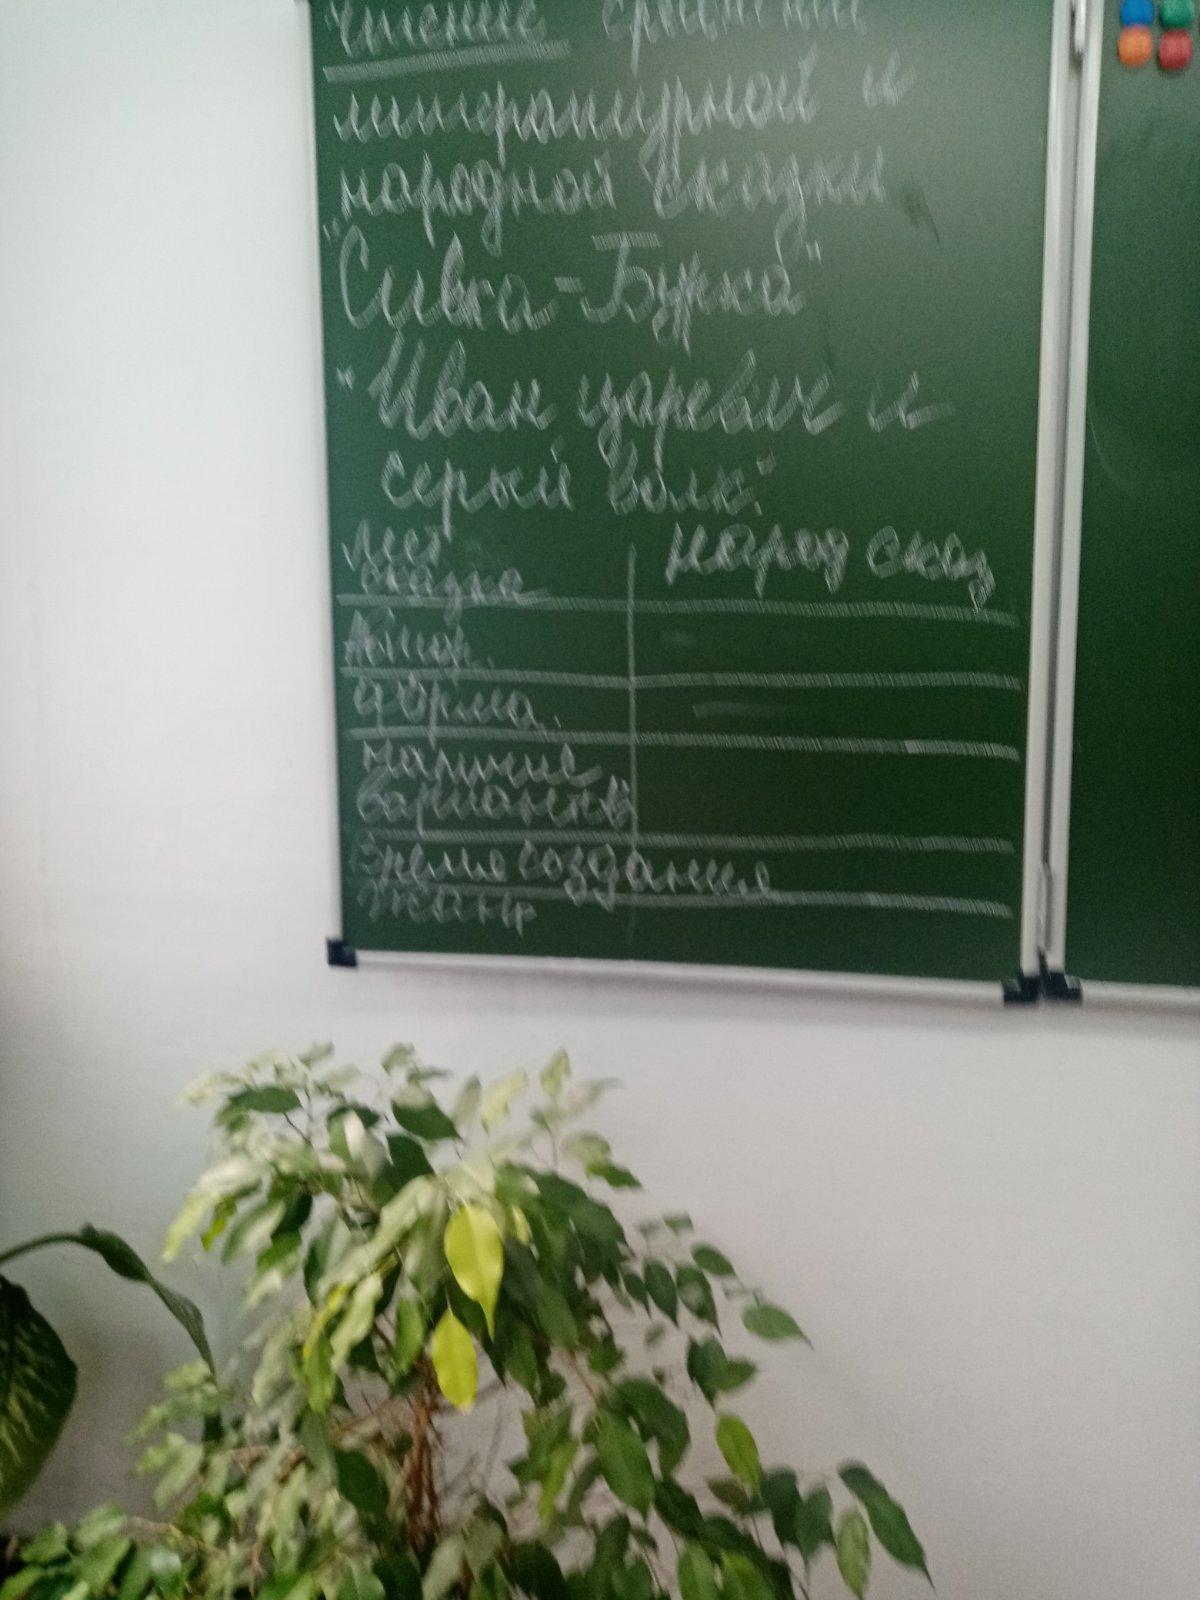 Чтение сравнение
литературной и
народной сказки
"Сивка-Бурка"
"Иван царевич и
серый волк".
Лит народ сказ
сказка
Автор.
форма.
наличие
вариантов
Время создания
Жанр